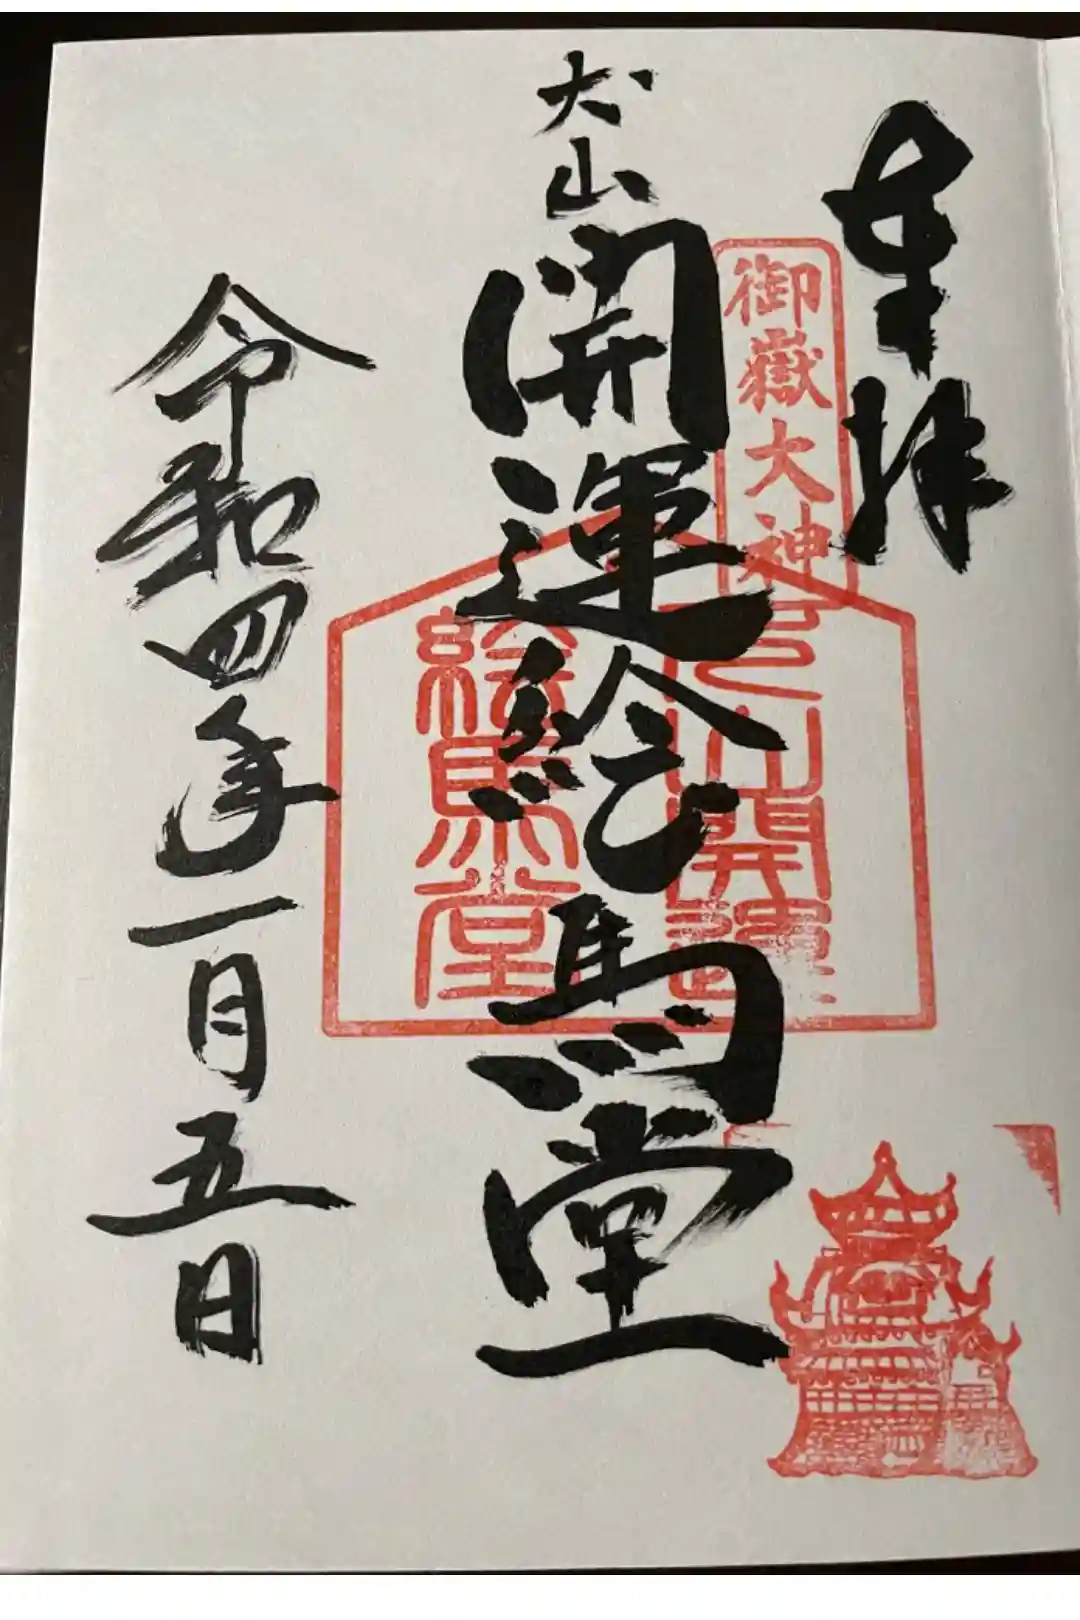 奉拝
御嶽大神
犬山開運絵馬堂
犬山開運
絵馬堂
令和四年一月五日